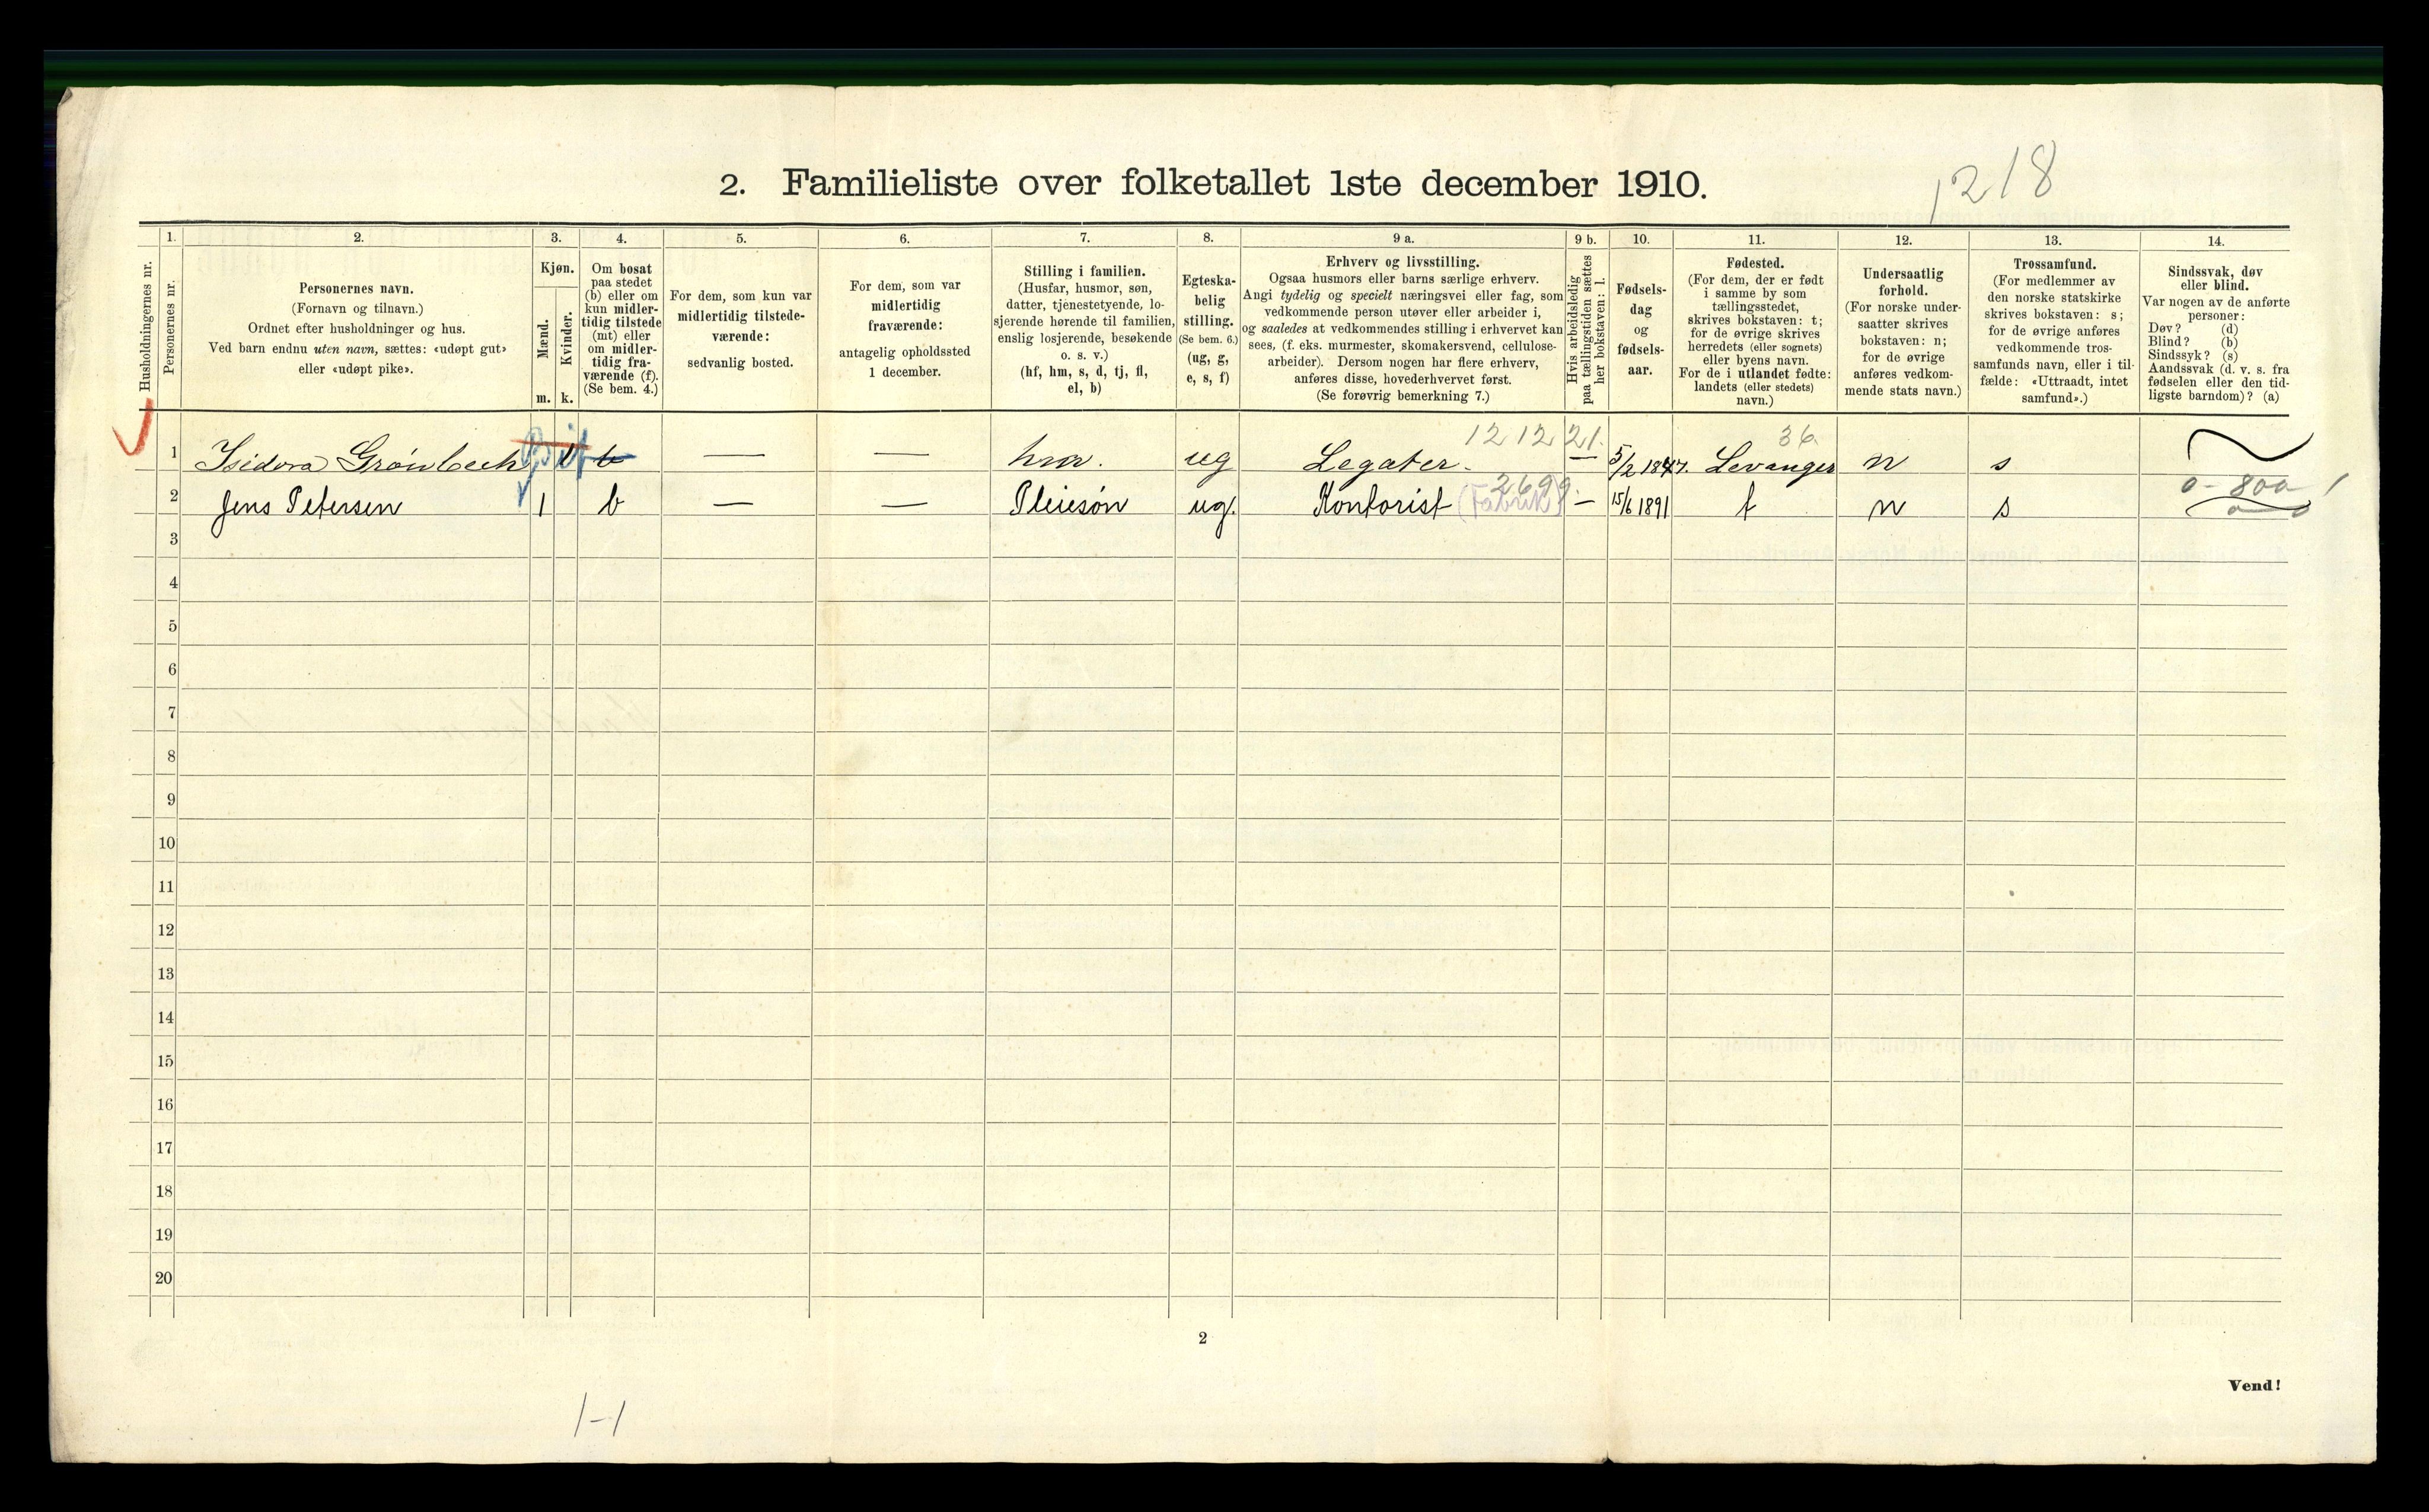 1218
2. Familieliste over folketallet 1ste december 1910.
Husholdningernes nr.
1.
Personernes nr.
2.
Personernes navn.
(Fornavn og tilnavn.)
Ordnet efter husholdninger og hus.
Ved barn endnu uten navn, sættes: «udøpt gut»
eller «udøpt pike».
3.
Kjøn.
Mænd.
Kvinder.
m. k.
4.
Om bosat
paa stedet
(b) eller om
kun midler-
tidig tilstede
(mt) eller
om midler-
tidig fra-
værende (f).
(Se bem. 4.)
5.
For dem, som kun var
midlertidig tilstede-
værende:
sedvanlig bosted.
6.
For dem, som var
midlertidig
fraværende:
antagelig opholdssted
1 december.
7.
Stilling i familien.
(Husfar, husmor, søn,
datter, tjenestetyende, lo-
sjerende hørende til familien,
enslig losjerende, besøkende
o. s. v.)
(hf, hm, s, d, tj, fl,
el, b)
8.
Egteska-
belig
stilling.
(Se bem. 6.)
(ug, g,
e, s, f)
9 a.
Erhverv og livsstilling.
Ogsaa husmors eller barns særlige erhverv.
Angi tydelig og specielt næringsvei eller fag, som
vedkommende person utøver eller arbeider i,
og saaledes at vedkommendes stilling i erhvervet kan
sees, (f. eks. murmester, skomakersvend, cellulose-
arbeider). Dersom nogen har flere erhverv,
anføres disse, hovederhvervet først.
(Se forøvrig bemerkning 7.)
9 b.
Hvis arbeidsledig
paa tællingstiden sættes
her bokstaven: l.
10.
Fødsels-
dag
og
fødsels-
aar.
11.
Fødested.
(For dem, der er født
i samme by som
tællingsstedet,
skrives bokstaven: t;
for de øvrige skrives
herredets (eller sognets)
eller byens navn.
For de i utlandet fødte:
landets (eller stedets)
navn.)
12.
Undersaatlig
forhold.
(For norske under-
saatter skrives
bokstaven: n;
for de øvrige
anføres vedkom-
mende stats navn.)
13.
Trossamfund.
(For medlemmer av
den norske statskirke
skrives bokstaven: s;
for de øvrige anføres
vedkommende tros-
samfunds navn, eller i til-
fælde: «Uttraadt, intet
samfund».)
14.
Sindssvak, døv
eller blind.
Var nogen av de anførte
personer:
Døv? (d)
Blind? (b)
Sindssyk? (s)
Aandssvak (d. v. s. fra
fødselen eller den tid-
ligste barndom)? (a)
1212 21. 36.
1 Isidora Grønbech 1 b — — hm. ug Legater. — 5/2 1847. Levanger n s
2699. 0-800
2 Jens Petersen 1 b — — Pleiesøn ug. Kontorist (Fabrik) — 15/6 1891 t n s
3
4
5
6
7
8
9
10
11
12
13
14
15
16
17
18
19
20
2
Vend!
1-1